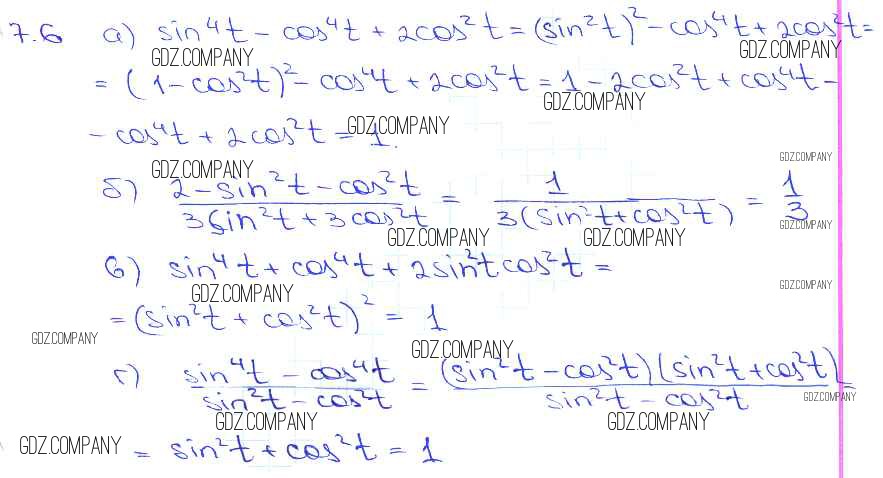 7.6 а) sin⁴t - cos⁴t + 2cos²t = (sin²t)² - cos⁴t + 2cos²t =
GDZ.COMPANY GDZ.COMPANY
= (1 - cos²t)² - cos⁴t + 2cos²t = 1 - 2cos²t + cos⁴t -
GDZ.COMPANY
- cos⁴t + 2cos²t = 1.
GDZ.COMPANY
GDZ.COMPANY
GDZ.COMPANY
б) (2 - sin²t - cos²t)/(3sin²t + 3cos²t) = 1/(3(sin²t + cos²t)) = 1/3
GDZ.COMPANY
GDZ.COMPANY GDZ.COMPANY
в) sin⁴t + cos⁴t + 2sin²t cos²t =
GDZ.COMPANY
GDZ.COMPANY
= (sin²t + cos²t)² = 1
GDZ.COMPANY
GDZ.COMPANY
г) (sin⁴t - cos⁴t)/(sin²t - cos²t) = ((sin²t - cos²t)(sin²t + cos²t))/(sin²t - cos²t) =
GDZ.COMPANY
GDZ.COMPANY GDZ.COMPANY
GDZ.COMPANY = sin²t + cos²t = 1